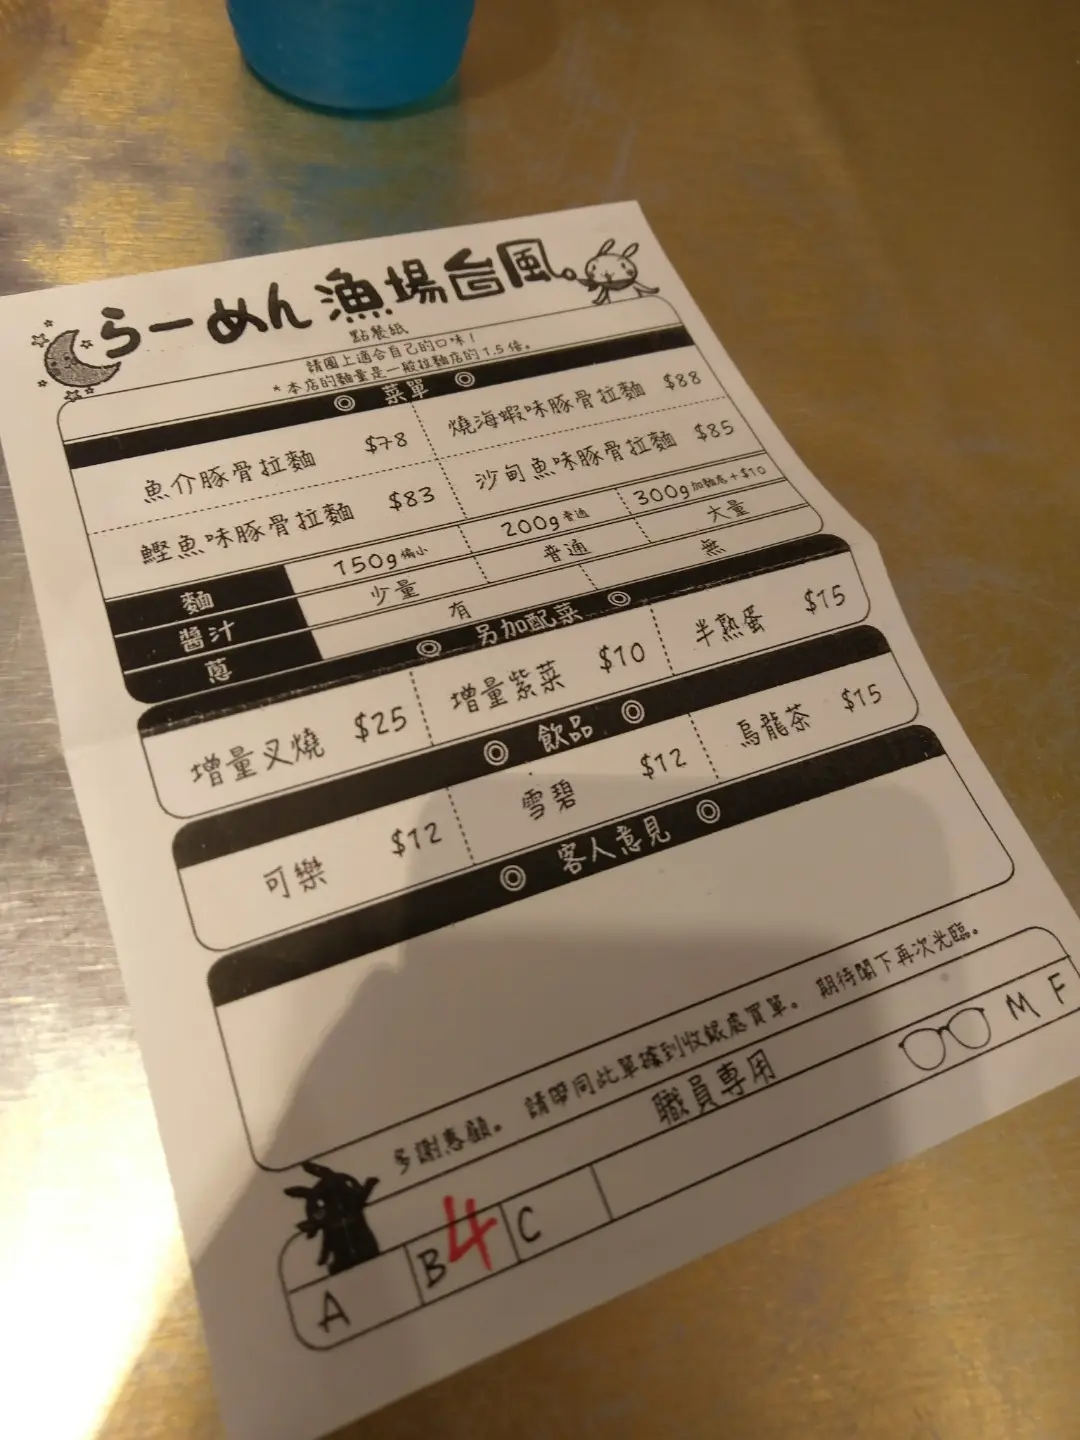 らーめん 漁場台風
點餐紙
請圈上適合自己的口味!
*本店的麵量是一般拉麵店的1.5倍。
◎ 菜單 ◎
魚介豚骨拉麵 $78 燒海蝦味豚骨拉麵 $88
鰹魚味豚骨拉麵 $83 沙甸魚味豚骨拉麵 $85
麵 150g偏小 200g普通 300g加麵底+$10
醬汁 少量 普通 大量
蔥 有 無
◎ 另加配菜 ◎
增量叉燒 $25 增量紫菜 $10 半熟蛋 $15
◎ 飲品 ◎
可樂 $12 雪碧 $12 烏龍茶 $15
◎ 客人意見 ◎
多謝惠顧。 請帶同此單據到收銀處買單。 期待閣下再次光臨。
職員專用 M F
A B 4 C